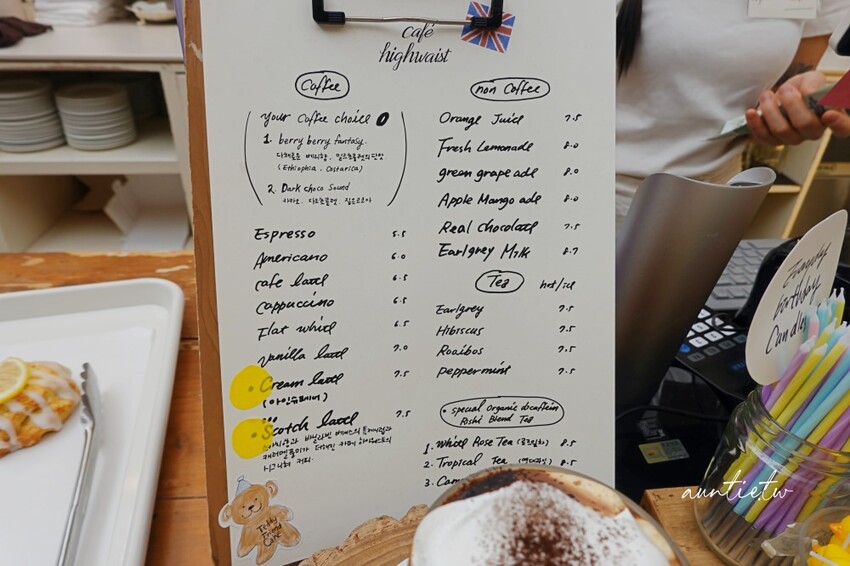 café
highwaist
Coffee
your coffee choice
1. berry berry fantasy.
(Ethiophia . Costarica)
2. Dark choco Sound
Espresso 5.5
Americano 6.0
cafe latte 6.5
cappuccino 6.5
Flat white 6.5
vanilla latte 7.0
Cream latte 7.5
(아인슈페너)
Scotch latte 7.5
시그니처 커피.
Teddy
Friend
Cafe
non Coffee
Orange Juice 7.5
Fresh Lemonade 8.0
green grape ade 8.0
Apple Mango ade 8.0
Real chocolate 7.5
Earlgrey Milk 8.7
Tea hot/ice
Earlgrey 7.5
Hibiscus 7.5
Rooibos 7.5
peppermint 7.5
• special organic decaffein
Rishi Blend Tea
1. White Rose Tea 8.5
2. Tropical Tea 8.5
3.
Fancy
birthday
Candles
auntie.tw